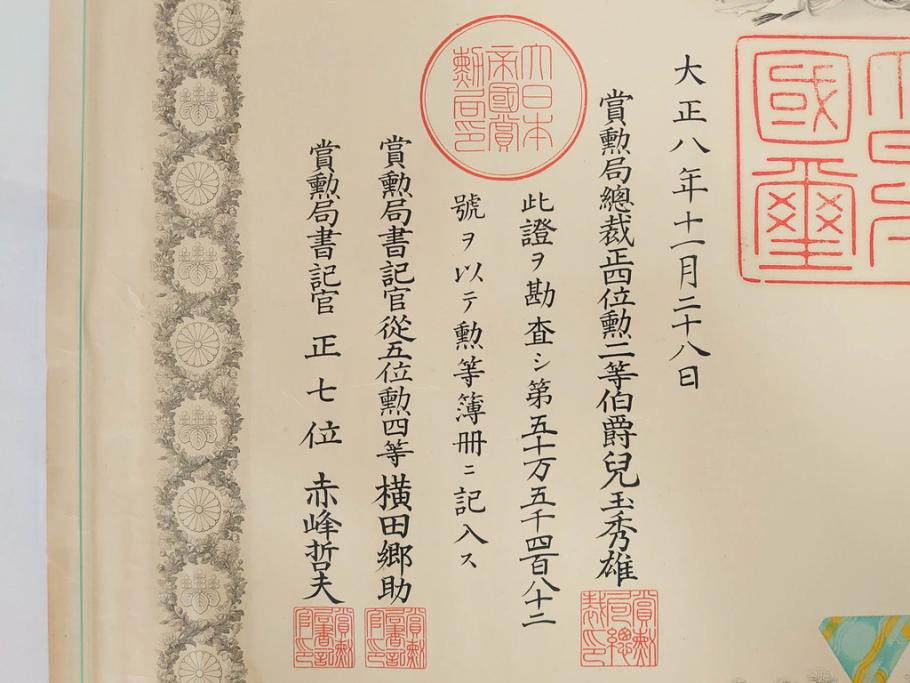 大正八年十一月二十八日
賞勲局總裁正四位勲二等伯爵兒玉秀雄
此證ヲ勘査シ第五十万五千四百八十二
號ヲ以テ勲等簿冊ニ記入ス
賞勲局書記官從五位勲四等横田郷助
賞勲局書記官正七位赤峰哲夫
大日本
帝國賞
勲局印
國璽
賞勲
局總
裁印
賞勲
局書記
官印
賞勲
局書記
官印